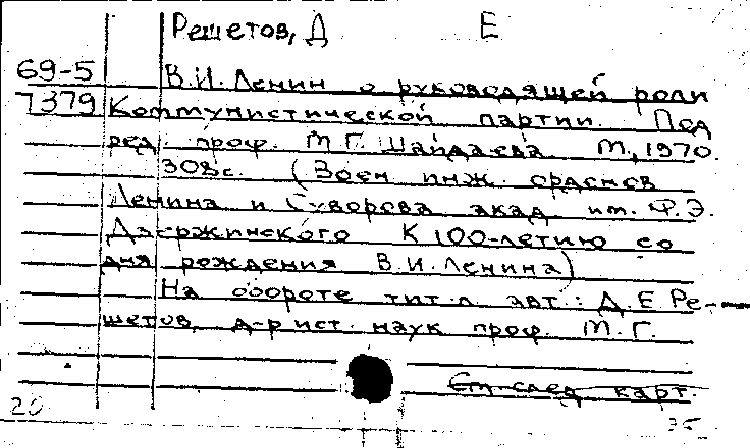 Решетов, Д Е
69-5 В.И. Ленин о руководящей роли
7379 Коммунистической партии. Под
ред. проф. М.Г. Шайдаева. М., 1970.
308с. (Воен. инж. орденов
Ленина и Суворова акад. им. Ф.Э.
Дзержинского. К 100-летию со
дня рождения В.И. Ленина)
На обороте тит. л. авт.: Д.Е. Ре-
шетов, д-р ист. наук проф. М.Г.
См. след. карт.
20 35